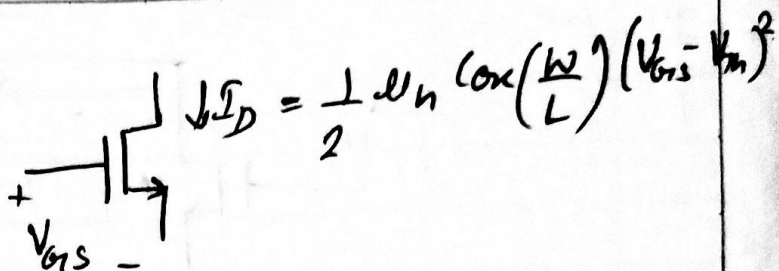 ↓I_D = 1/2 μn Cox (W/L) (VGS - Vth)²
+
VGS
-